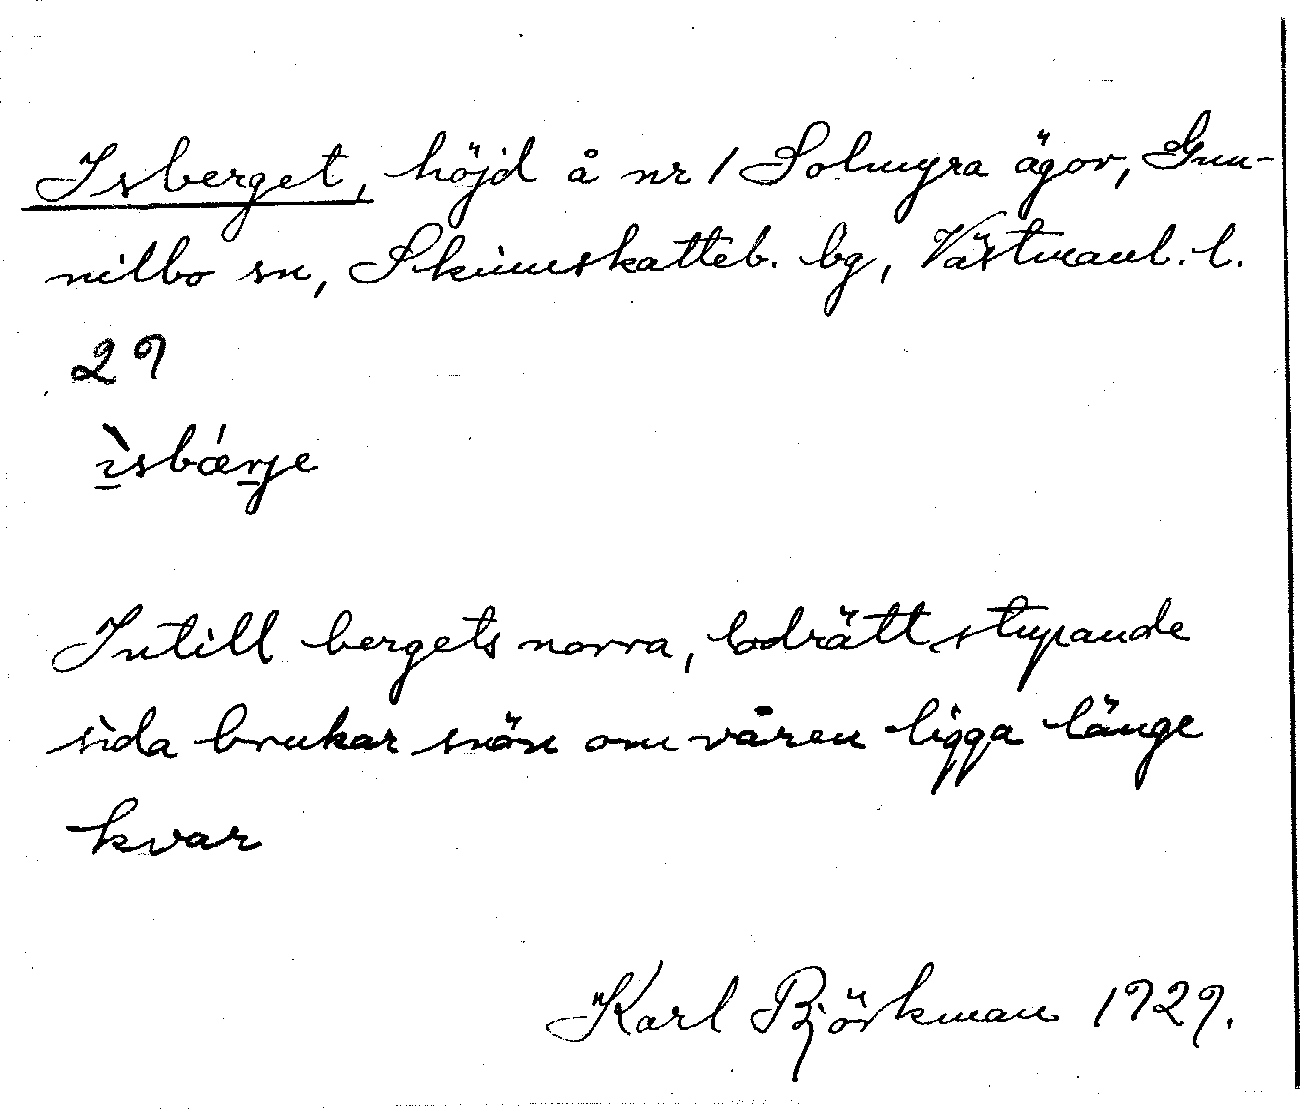 Isberget, höjd å nr 1 Solmyra ägor, Gun-
nilbo sn, Skinnskatteb. bg, Västmanl. l.
29
ìsbǽrje
Intill bergets norra, lodrätt stupande
sida brukar snön om våren ligga länge
kvar
Karl Björkman 1929.